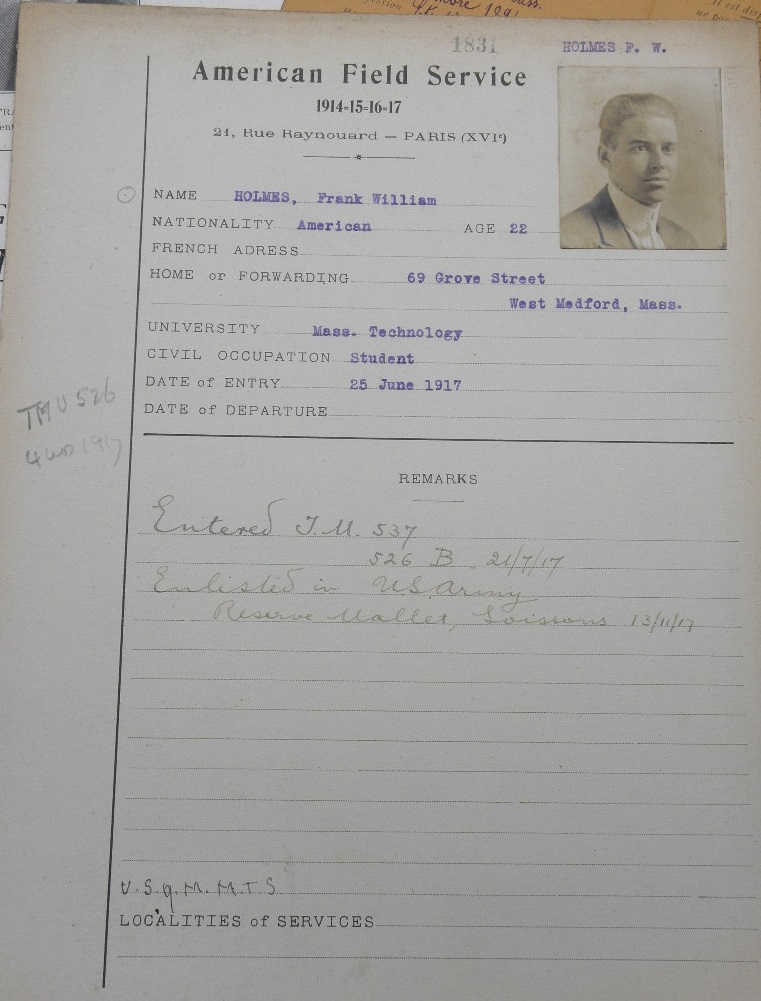 1831
HOLMES F. W.
American Field Service
1914-15-16-17
21, Rue Raynouard — PARIS (XVIe)
NAME HOLMES, Frank William
NATIONALITY American AGE 22
FRENCH ADRESS
HOME or FORWARDING 69 Grove Street
West Medford, Mass.
UNIVERSITY Mass. Technology
CIVIL OCCUPATION Student
DATE of ENTRY 25 June 1917
DATE of DEPARTURE
TMU 526
1917
REMARKS
Entered T.M. 537
526 B 21/7/17
Enlisted in US Army
Reserve Mallet, Soissons 13/11/17
U.S.Q.M. M.T.S.
LOCALITIES of SERVICES